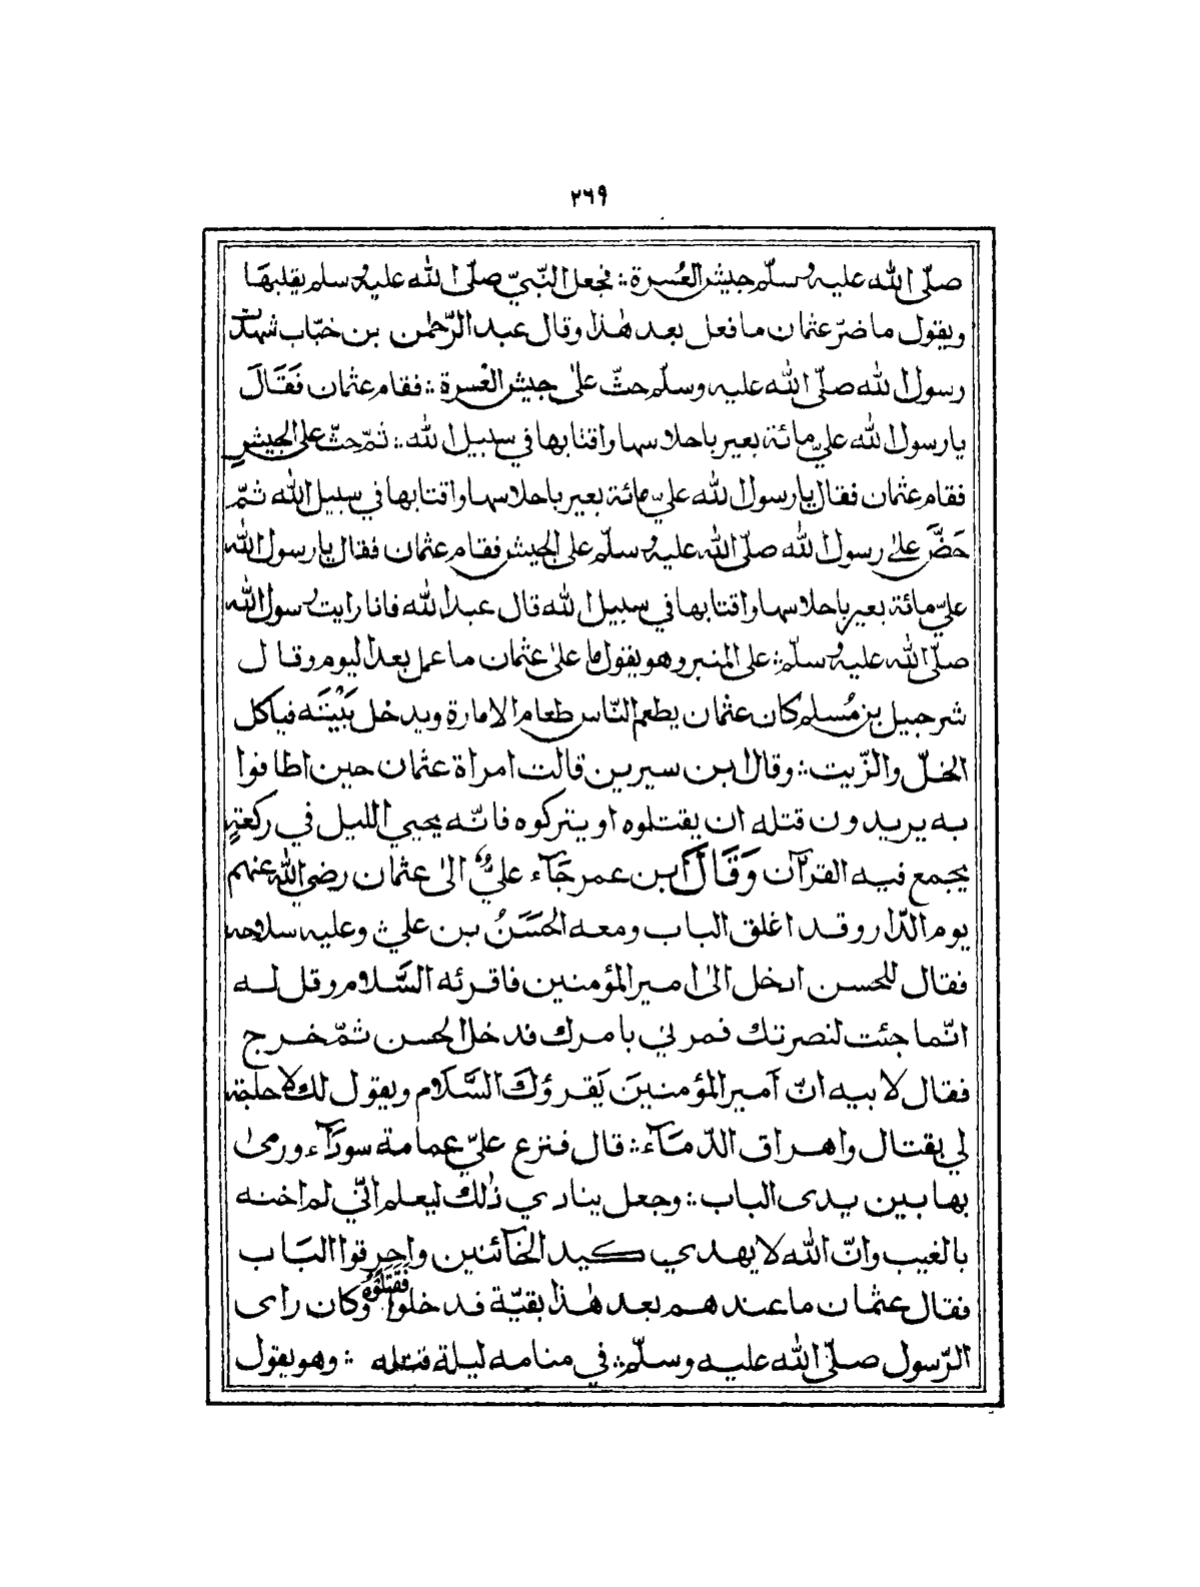 ٢٦٩
صلّى الله عليه وسلّم جيش العُسرة ؞ فجعل النّبيّ صلّى الله عليه وسلم يقلبهَا
ويقول ما ضرّ عثمان ما فعل بعد هٰذا وقال عبد الرّحمٰن بن خبّاب شهدت
رسول الله صلّى الله عليه وسلّم حثّ علىٰ جيش العُسرة ؞ فقام عثمان فَقَالَ
يا رسول الله عليّ مائة بعير باحلاسها واقتابها في سبيل الله ؞ ثمّ حثّ على الجيش
فقام عثمان فقال يا رسول الله عليّ مائة بعير باحلاسها واقتابها في سبيل الله ثمّ
حَضَّ علىٰ رسول الله صلّى الله عليه وسلّم على الجيش فقام عثمان فقال يا رسول الله
عليّ مائة بعير باحلاسها واقتابها في سبيل الله قال عبد الله فانا رايت رسول الله
صلّى الله عليه وسلّم ؞ على المنبر وهو يقول ما علىٰ عثمان ما عمل بعد اليوم وقال
شرحبيل بن مُسلم كان عثمان يطعم النّاس طعام الامارة ويدخل بَيْتَه فياكل
الخلّ والزّيت ؞ وقال ابن سيرين قالت امراة عثمان حين اطافوا
به يريدون قتله ان يقتلوه او يتركوه فانّه يحيي الليل في ركعته
يجمع فيه القرآن وَقَالَ ابن عمر جَآء عليٌّ الىٰ عثمان رضي الله عنهم
يوم الدّار وقد اغلق الباب ومعه الحَسَنُ بن علي وعليه سلاحه
فقال للحسن ادخل الىٰ امير المؤمنين فاقرئه السَّلام وقل له
انّما جئت لنصرتك فمرني بامرك فدخل الحسن ثمّ خرج
فقال لابيه انّ آمير المؤمنينَ يَقرؤكَ السَّلام ويقول لك لا حاجة
لي بقتال واهراق الدّمَآء ؞ قال فنزع عليّ عمامة سودَآء ورمىٰ
بها بين يدى الباب ؞ وجعل ينادي ذٰلك ليعلم انّي لم اخنه
بالغيب وانّ الله لا يهدي كيد الخآئنين واحرقوا البَاب
فقال عثمان ما عندهم بعد هٰذا بقيّة فدخلوا فَقَتَلُوْهُ وكان راى
الرّسول صلّى الله عليه وسلّم ؞ في منامه ليلة قتله ؞ وهو يقول